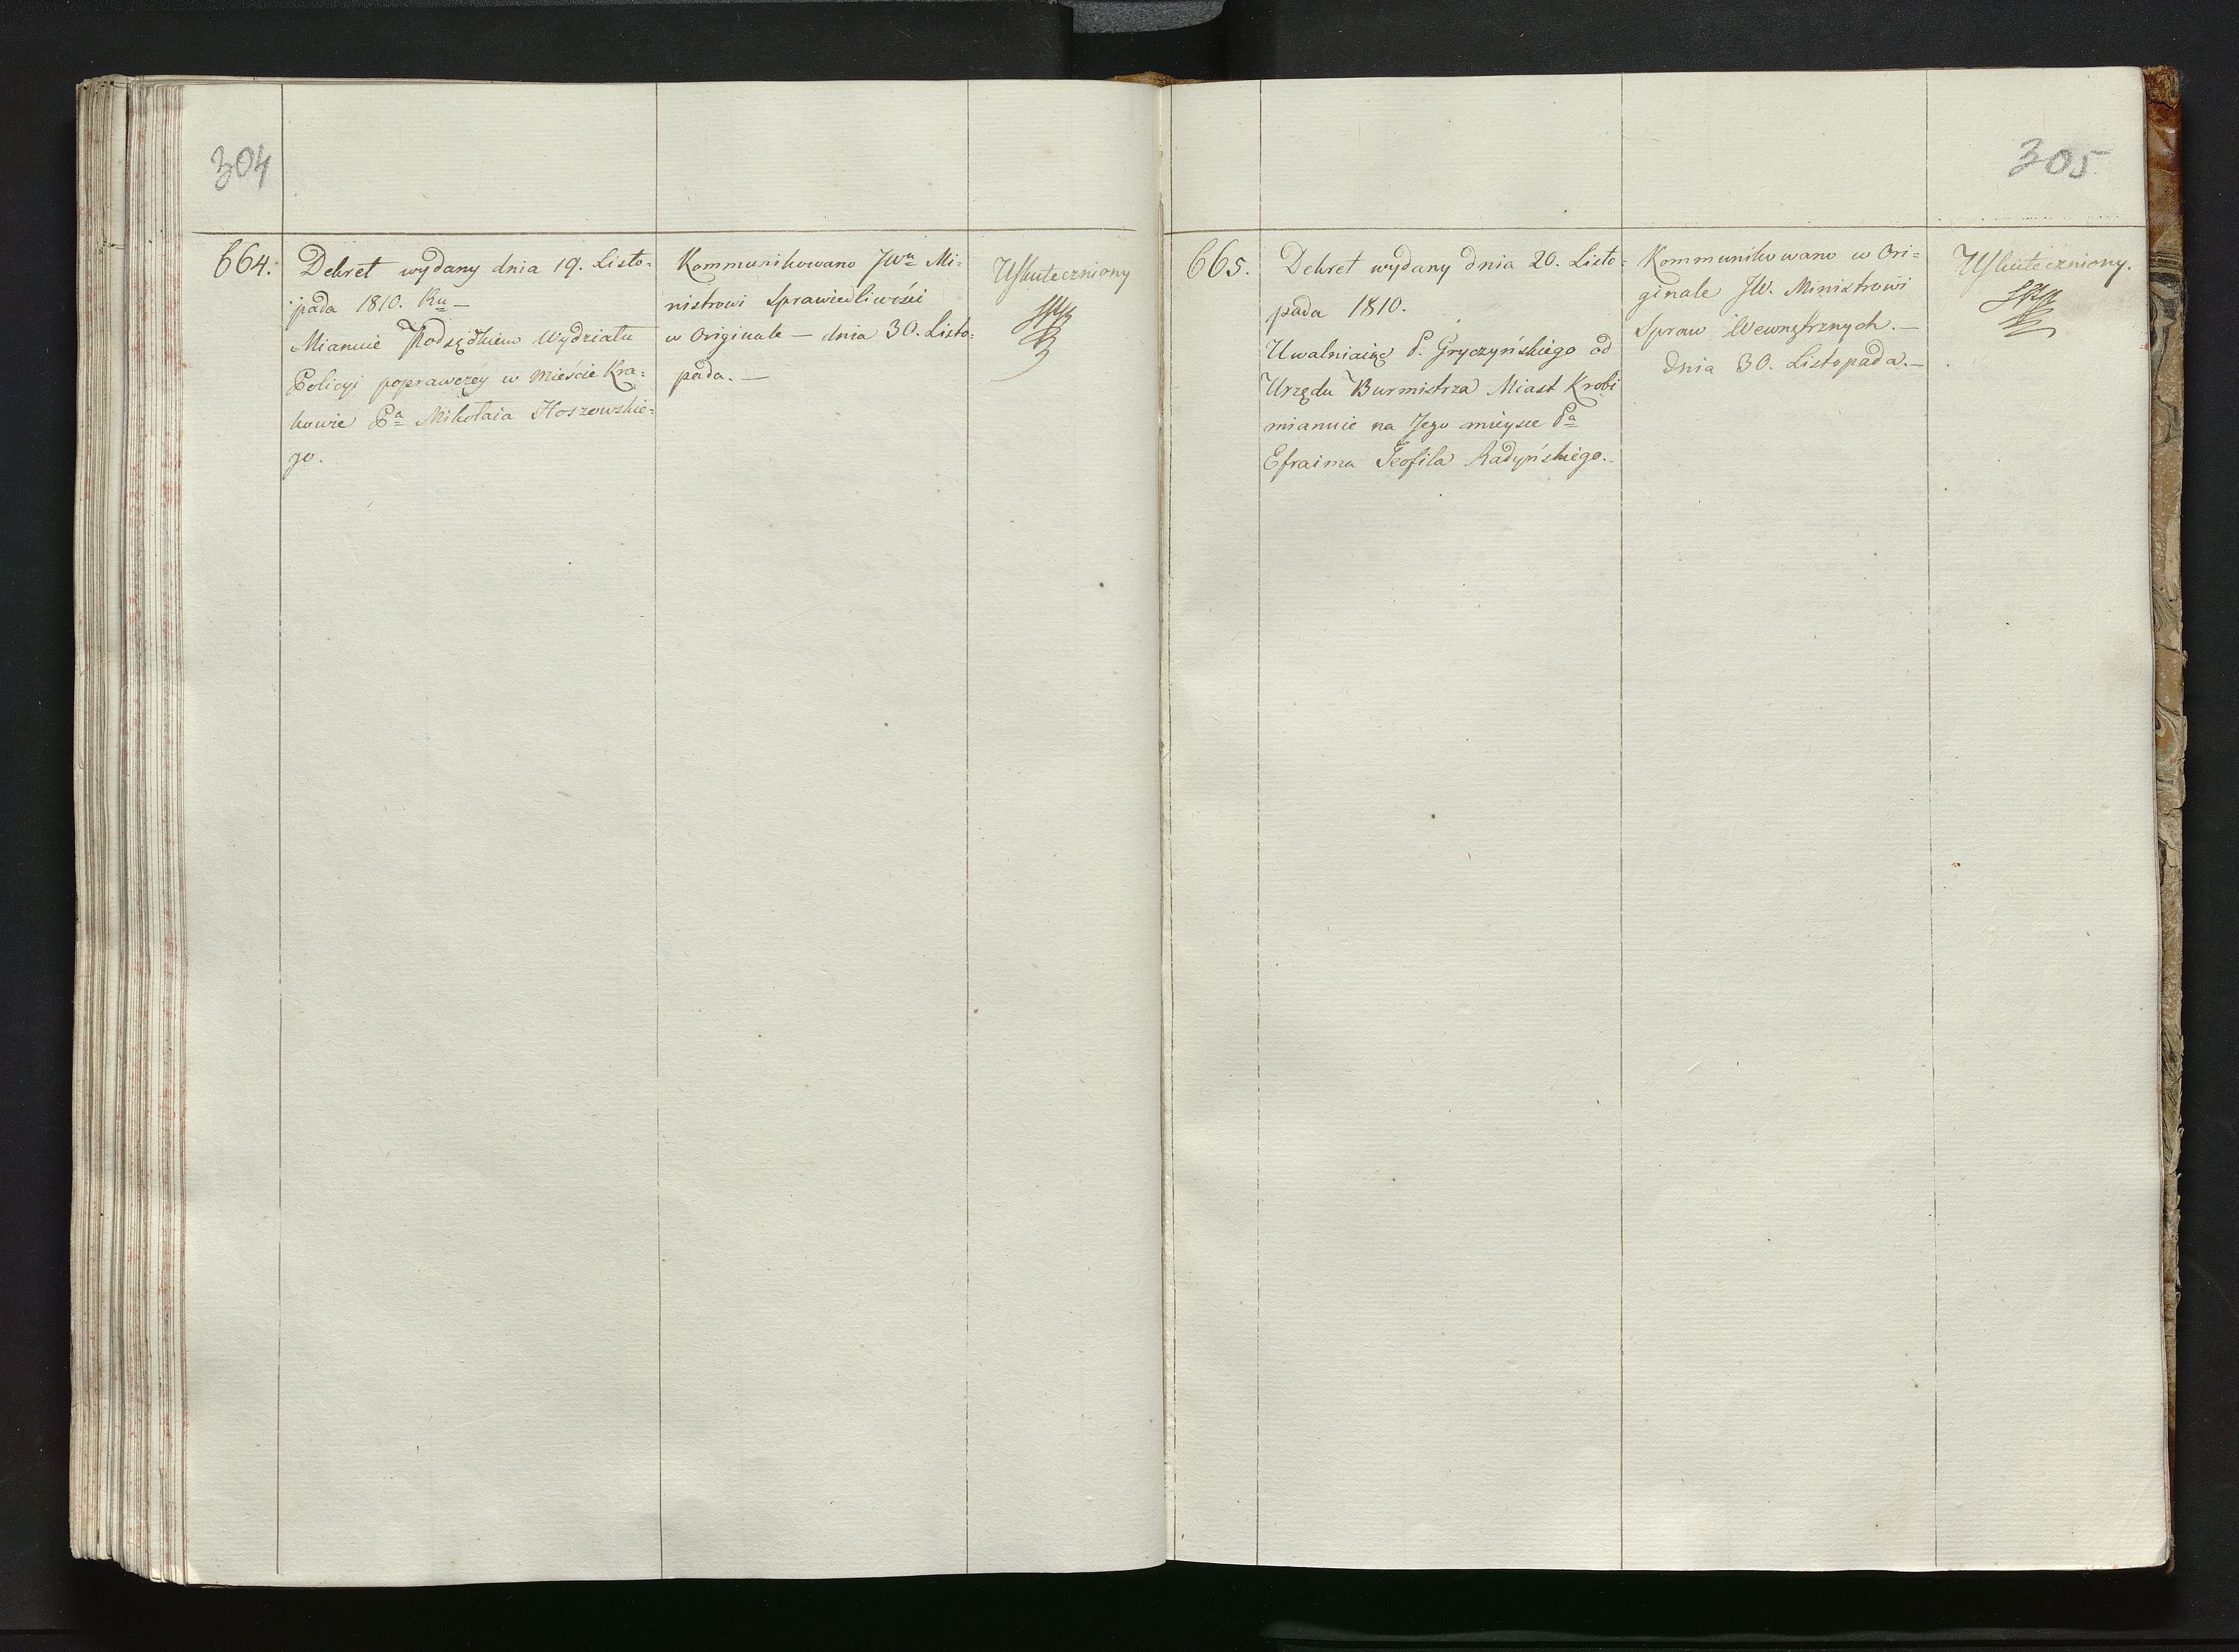 304
664.
Dekret wydany dnia 19. Listo-
pada 1810. Ru
Mianuie Podsędkiem Wydziału
Policyi poprawczey w Mieście Kra-
kowie Pa Mikołaia Hoszowskie-
go.
Kommunikowano JWu Mi-
nistrowi Sprawiedliwości
w Originale — dnia 30. Listo-
pada. —
Uskuteczniony
305
665.
Dekret wydany dnia 20. Listo-
pada 1810.
Uwalniaiąc P. Gryczyńskiego od
Urzędu Burmistrza Miast Krobi
mianuie na Jego mieysce Pa
Efraima Teofila Radyńskiego. —
Kommunikowano w Ori-
ginale JW. Ministrowi
Spraw Wewnętrznych. —
dnia 30. Listopada. —
Uskuteczniony.